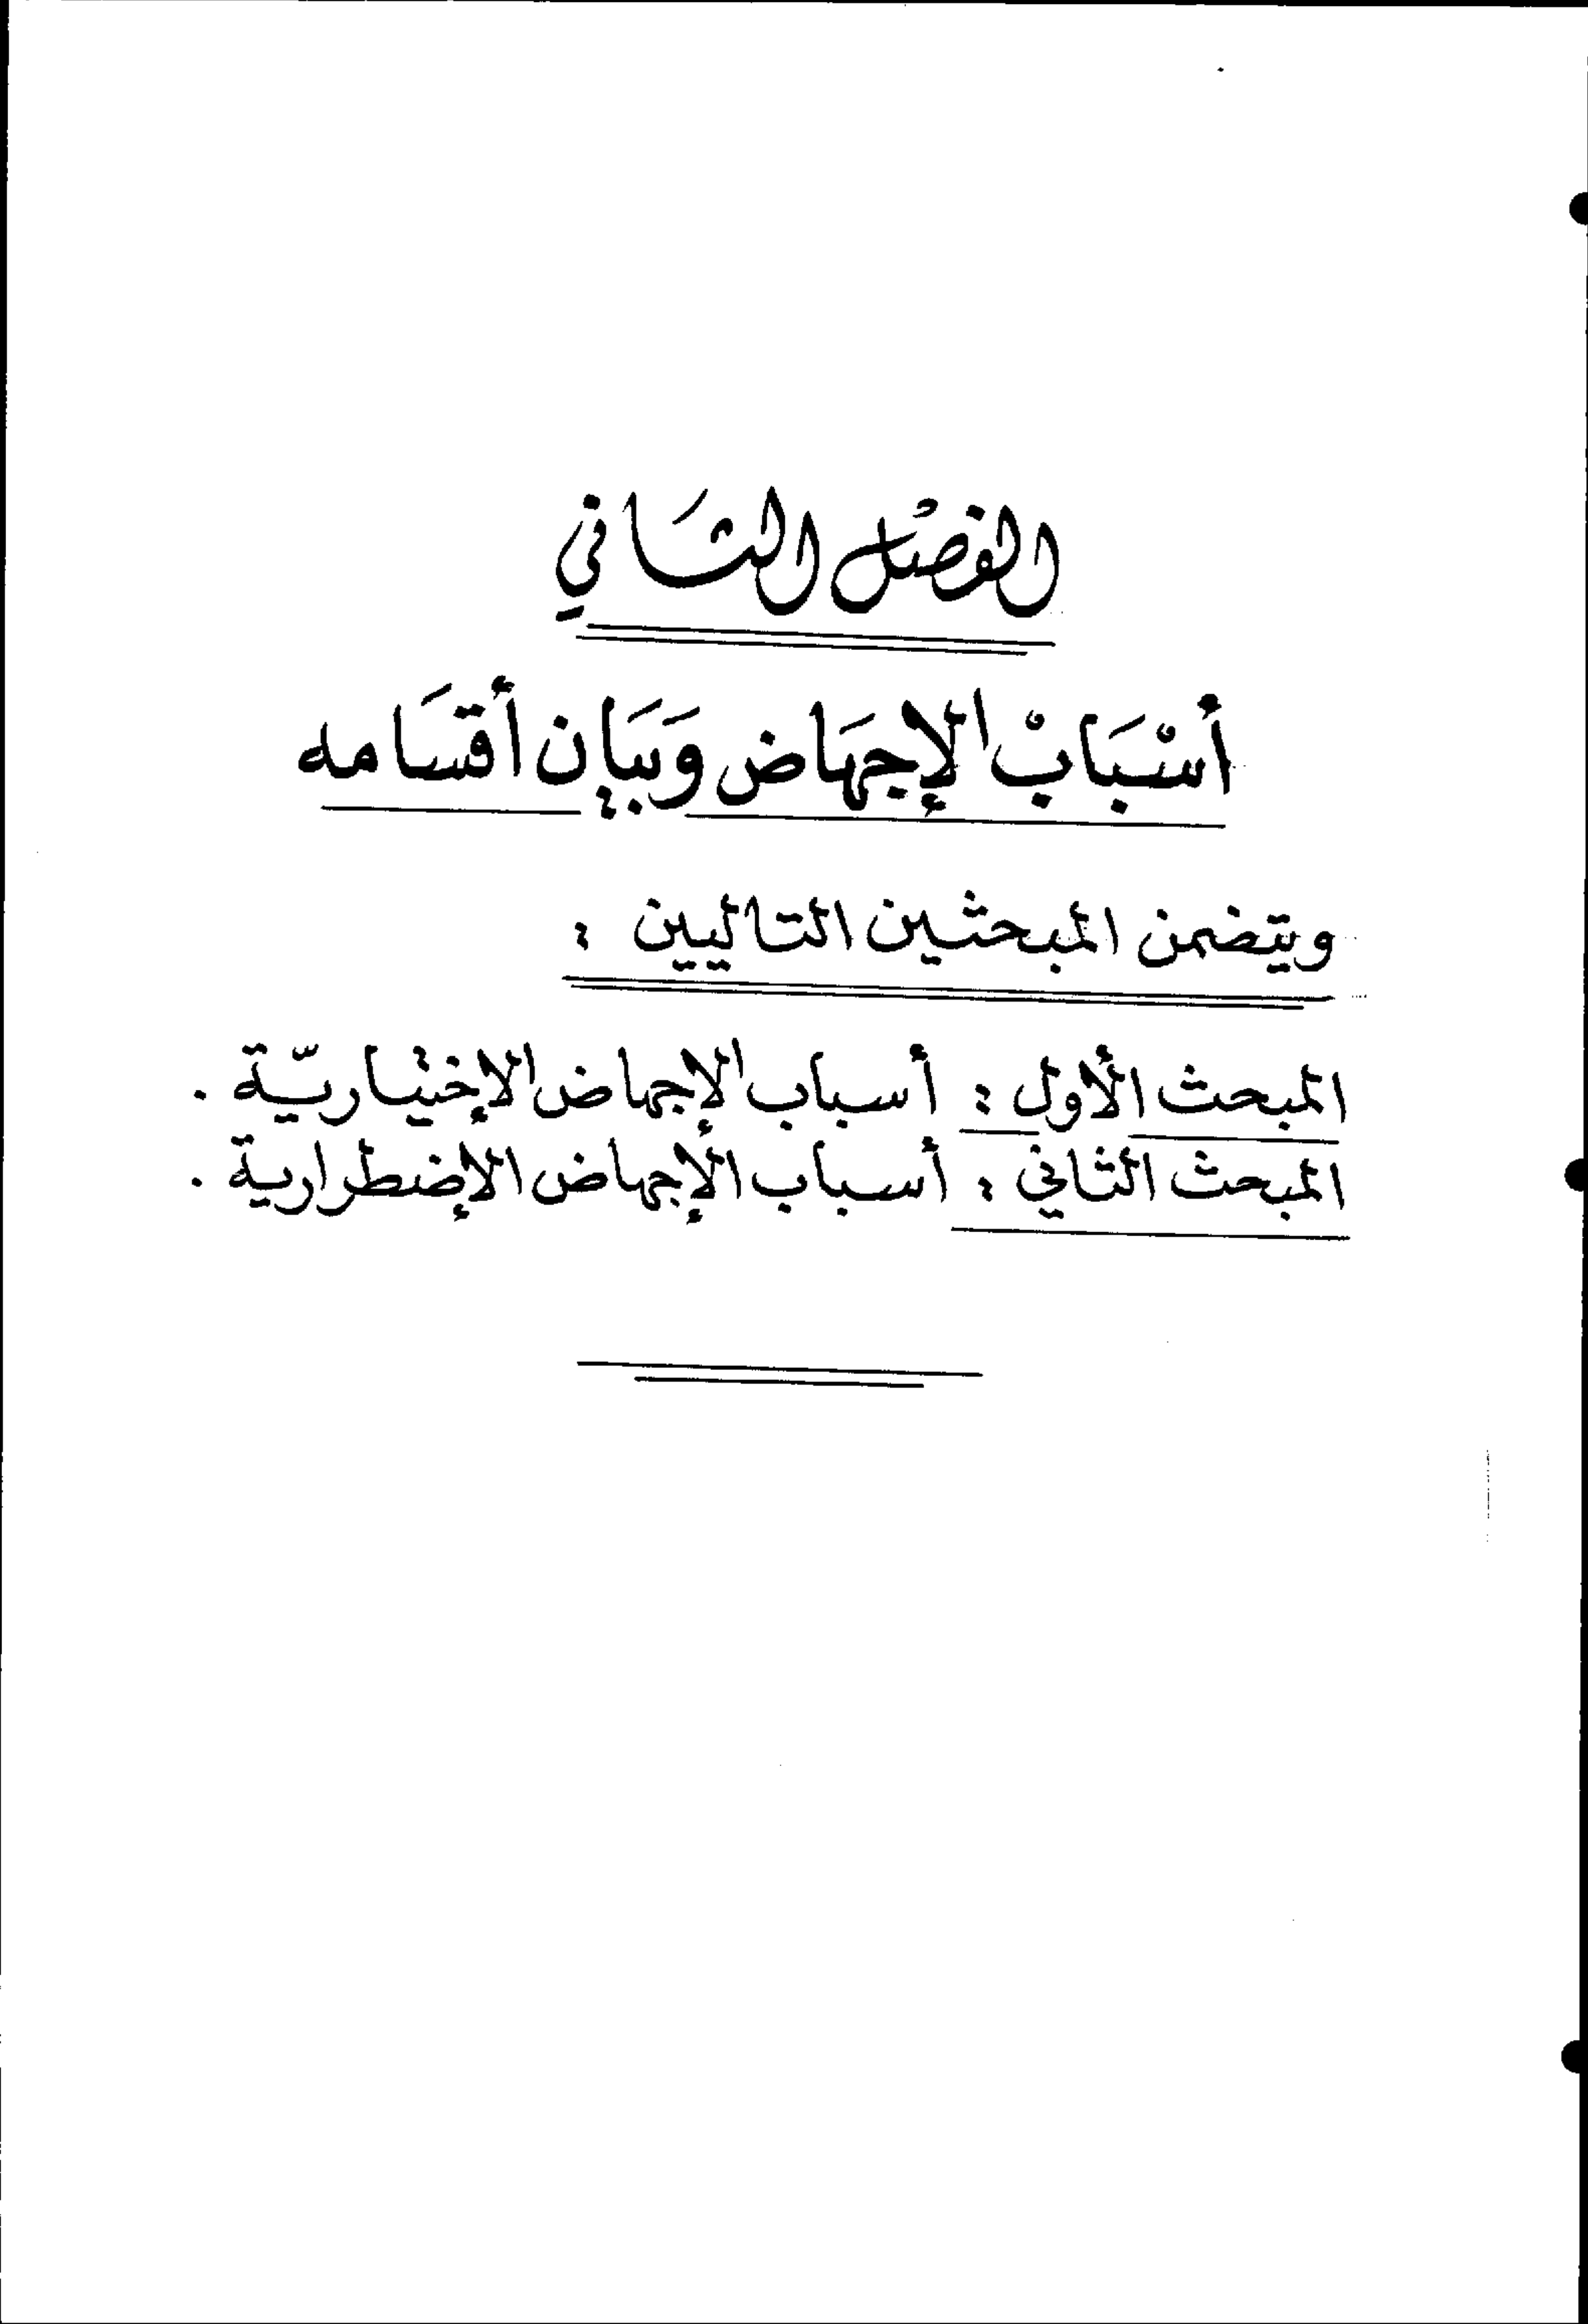 الفصْل الثَاني
أسْبَابْ الإجهَاض وَبيَان أقسَامه
ويتضمن المبحثين التاليين :
المبحث الأول : أسباب الإجهاض الإختياريّة .
المبحث الثاني : أسباب الإجهاض الإضطرارية .